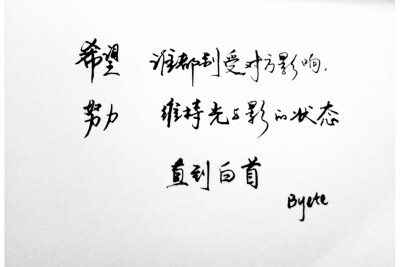 希望 谁都别受对方影响.
努力 维持光与影的状态
直到白首
By